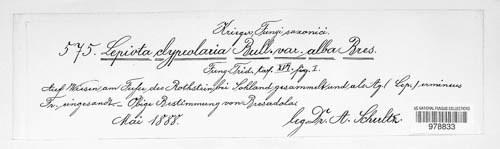 Krieger, Fungi saxonici.
575. Lepiota clypeolaria Bull. var. alba Bres.
Fung. Trid. taf. XVI. fig. I.
Auf Wiesen am Fusse des Rothstein bei Sohland gesammelt und als Ag. (Lep.) ermineus
Fr. eingesandt. – Obige Bestimmung von Bresadola.
Mai 1888. leg. Dr. A. Schultz.
US NATIONAL FUNGUS COLLECTIONS
978833